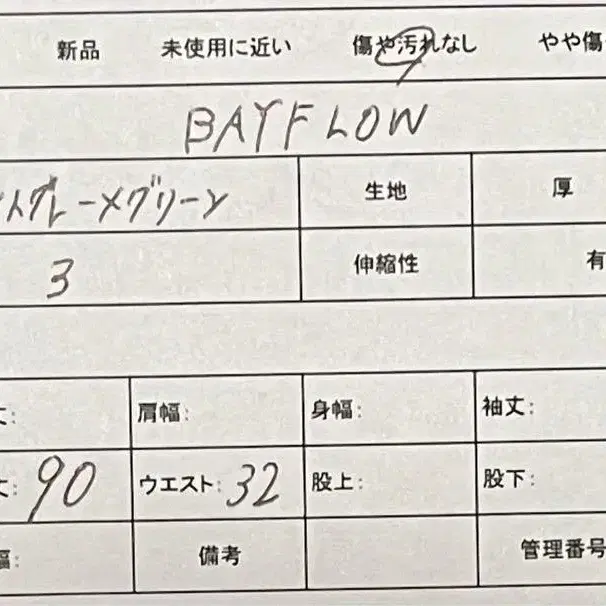 新品 未使用に近い 傷や汚れなし やや傷
BAYFLOW
トグレー×グリーン 生地 厚
3 伸縮性 有
丈: 肩幅: 身幅: 袖丈:
丈: 90 ウエスト: 32 股上: 股下:
幅: 備考 管理番号